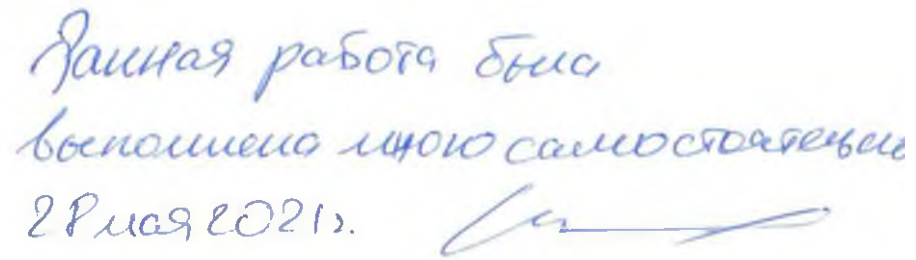 Данная работа была
выполнена мною самостоятельно
28 мая 2021г.